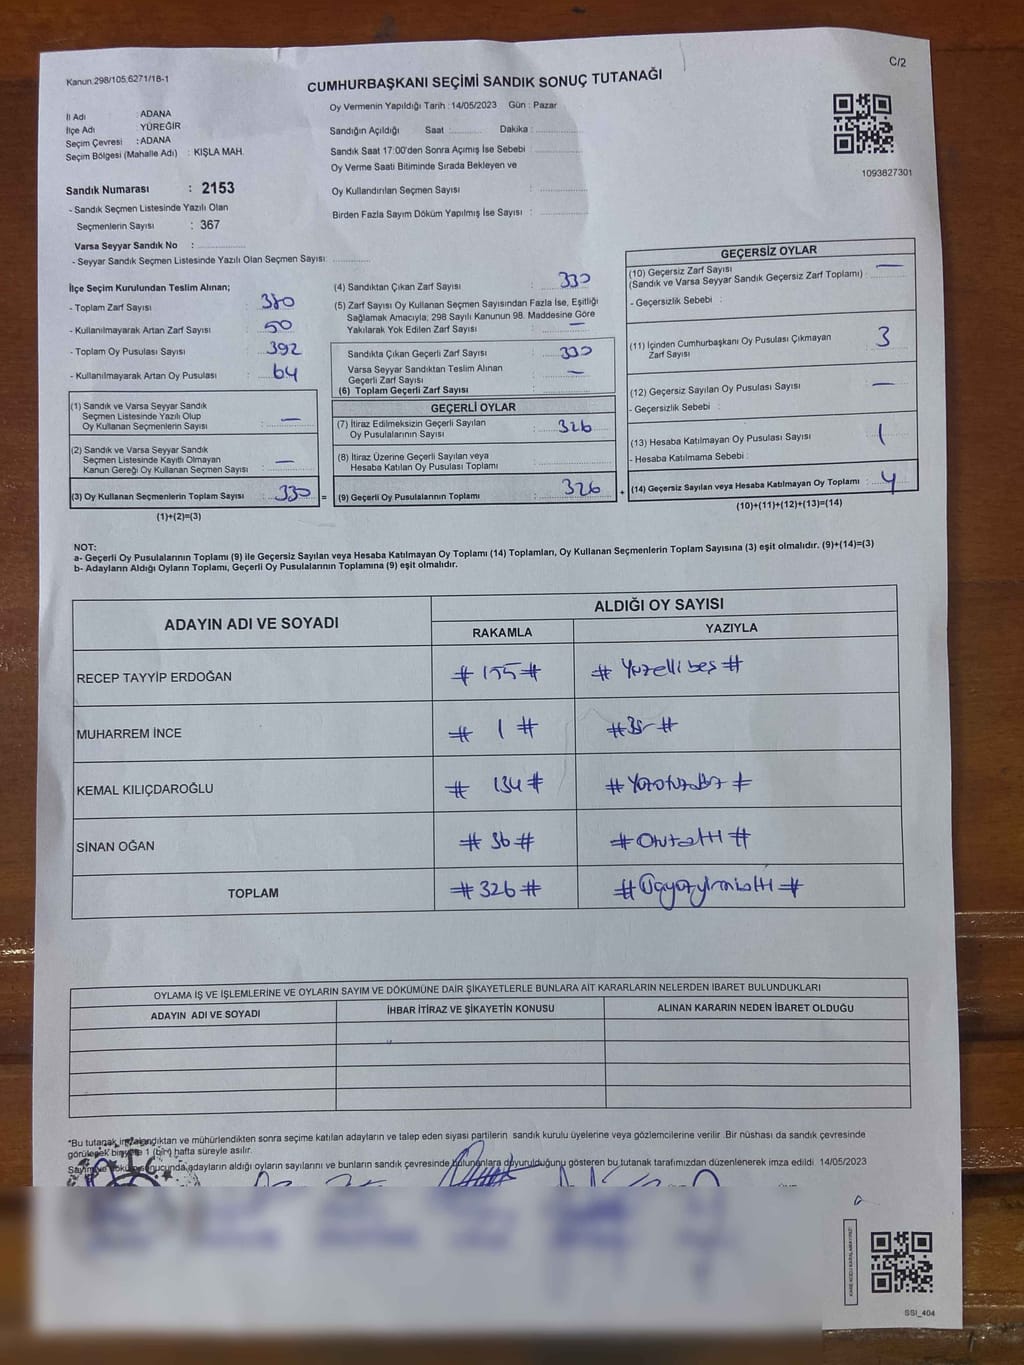 Kanun.298/105,6271/18-1
C/2
CUMHURBAŞKANI SEÇİMİ SANDIK SONUÇ TUTANAĞI
1093827301
İl Adı : ADANA
İlçe Adı : YÜREĞİR
Seçim Çevresi : ADANA
Seçim Bölgesi (Mahalle Adı) : KIŞLA MAH.
Sandık Numarası : 2153
- Sandık Seçmen Listesinde Yazılı Olan
Seçmenlerin Sayısı : 367
Varsa Seyyar Sandık No :
- Seyyar Sandık Seçmen Listesinde Yazılı Olan Seçmen Sayısı :
Oy Vermenin Yapıldığı Tarih : 14/05/2023 Gün : Pazar
Sandığın Açıldığı Saat : Dakika :
Sandık Saat 17:00'den Sonra Açımış İse Sebebi :
Oy Verme Saati Bitiminde Sırada Bekleyen ve
Oy Kullandırılan Seçmen Sayısı :
Birden Fazla Sayım Döküm Yapılmış İse Sayısı :
İlçe Seçim Kurulundan Teslim Alınan;
- Toplam Zarf Sayısı : 380
- Kullanılmayarak Artan Zarf Sayısı : 50
- Toplam Oy Pusulası Sayısı : 392
- Kullanılmayarak Artan Oy Pusulası : 64
(1) Sandık ve Varsa Seyyar Sandık
Seçmen Listesinde Yazılı Olup
Oy Kullanan Seçmenlerin Sayısı : —
(2) Sandık ve Varsa Seyyar Sandık
Seçmen Listesinde Kayıtlı Olmayan
Kanun Gereği Oy Kullanan Seçmen Sayısı : —
(3) Oy Kullanan Seçmenlerin Toplam Sayısı : 330 =
(1)+(2)=(3)
(4) Sandıktan Çıkan Zarf Sayısı : 330
(5) Zarf Sayısı Oy Kullanan Seçmen Sayısından Fazla İse, Eşitliği
Sağlamak Amacıyla; 298 Sayılı Kanunun 98. Maddesine Göre
Yakılarak Yok Edilen Zarf Sayısı : —
Sandıkta Çıkan Geçerli Zarf Sayısı : 330
Varsa Seyyar Sandıktan Teslim Alınan
Geçerli Zarf Sayısı : —
(6) Toplam Geçerli Zarf Sayısı :
GEÇERLİ OYLAR
(7) İtiraz Edilmeksizin Geçerli Sayılan
Oy Pusulalarının Sayısı : 326
(8) İtiraz Üzerine Geçerli Sayılan veya
Hesaba Katılan Oy Pusulası Toplamı :
(9) Geçerli Oy Pusulalarının Toplamı : 326 +
GEÇERSİZ OYLAR
(10) Geçersiz Zarf Sayısı
(Sandık ve Varsa Seyyar Sandık Geçersiz Zarf Toplamı) : —
- Geçersizlik Sebebi :
(11) İçinden Cumhurbaşkanı Oy Pusulası Çıkmayan
Zarf Sayısı : 3
(12) Geçersiz Sayılan Oy Pusulası Sayısı : —
- Geçersizlik Sebebi :
(13) Hesaba Katılmayan Oy Pusulası Sayısı : 1
- Hesaba Katılmama Sebebi :
(14) Geçersiz Sayılan veya Hesaba Katılmayan Oy Toplamı : 4
(10)+(11)+(12)+(13)=(14)
NOT:
a- Geçerli Oy Pusulalarının Toplamı (9) ile Geçersiz Sayılan veya Hesaba Katılmayan Oy Toplamı (14) Toplamları, Oy Kullanan Seçmenlerin Toplam Sayısına (3) eşit olmalıdır. (9)+(14)=(3)
b- Adayların Aldığı Oyların Toplamı, Geçerli Oy Pusulalarının Toplamına (9) eşit olmalıdır.
ADAYIN ADI VE SOYADI ALDIĞI OY SAYISI
RAKAMLA YAZIYLA
RECEP TAYYİP ERDOĞAN # 155 # # Yüzellibeş #
MUHARREM İNCE # 1 # # Bir #
KEMAL KILIÇDAROĞLU # 134 # # Yüzotuzdört #
SİNAN OĞAN # 36 # # Otuzaltı #
TOPLAM # 326 # # Üçyüzyirmialtı #
OYLAMA İŞ VE İŞLEMLERİNE VE OYLARIN SAYIM VE DÖKÜMÜNE DAİR ŞİKAYETLERLE BUNLARA AİT KARARLARIN NELERDEN İBARET BULUNDUKLARI
ADAYIN ADI VE SOYADI İHBAR İTİRAZ VE ŞİKAYETİN KONUSU ALINAN KARARIN NEDEN İBARET OLDUĞU
*Bu tutanak imzalandıktan ve mühürlendikten sonra seçime katılan adayların ve talep eden siyasi partilerin sandık kurulu üyelerine veya gözlemcilerine verilir. Bir nüshası da sandık çevresinde
görülecek bir yere 1 (bir) hafta süreyle asılır.
Sayım ve döküm sonucunda adayların aldığı oyların sayılarını ve bunların sandık çevresinde bulunanlara duyurulduğunu gösteren bu tutanak tarafımızdan düzenlenerek imza edildi 14/05/2023
SSI_404